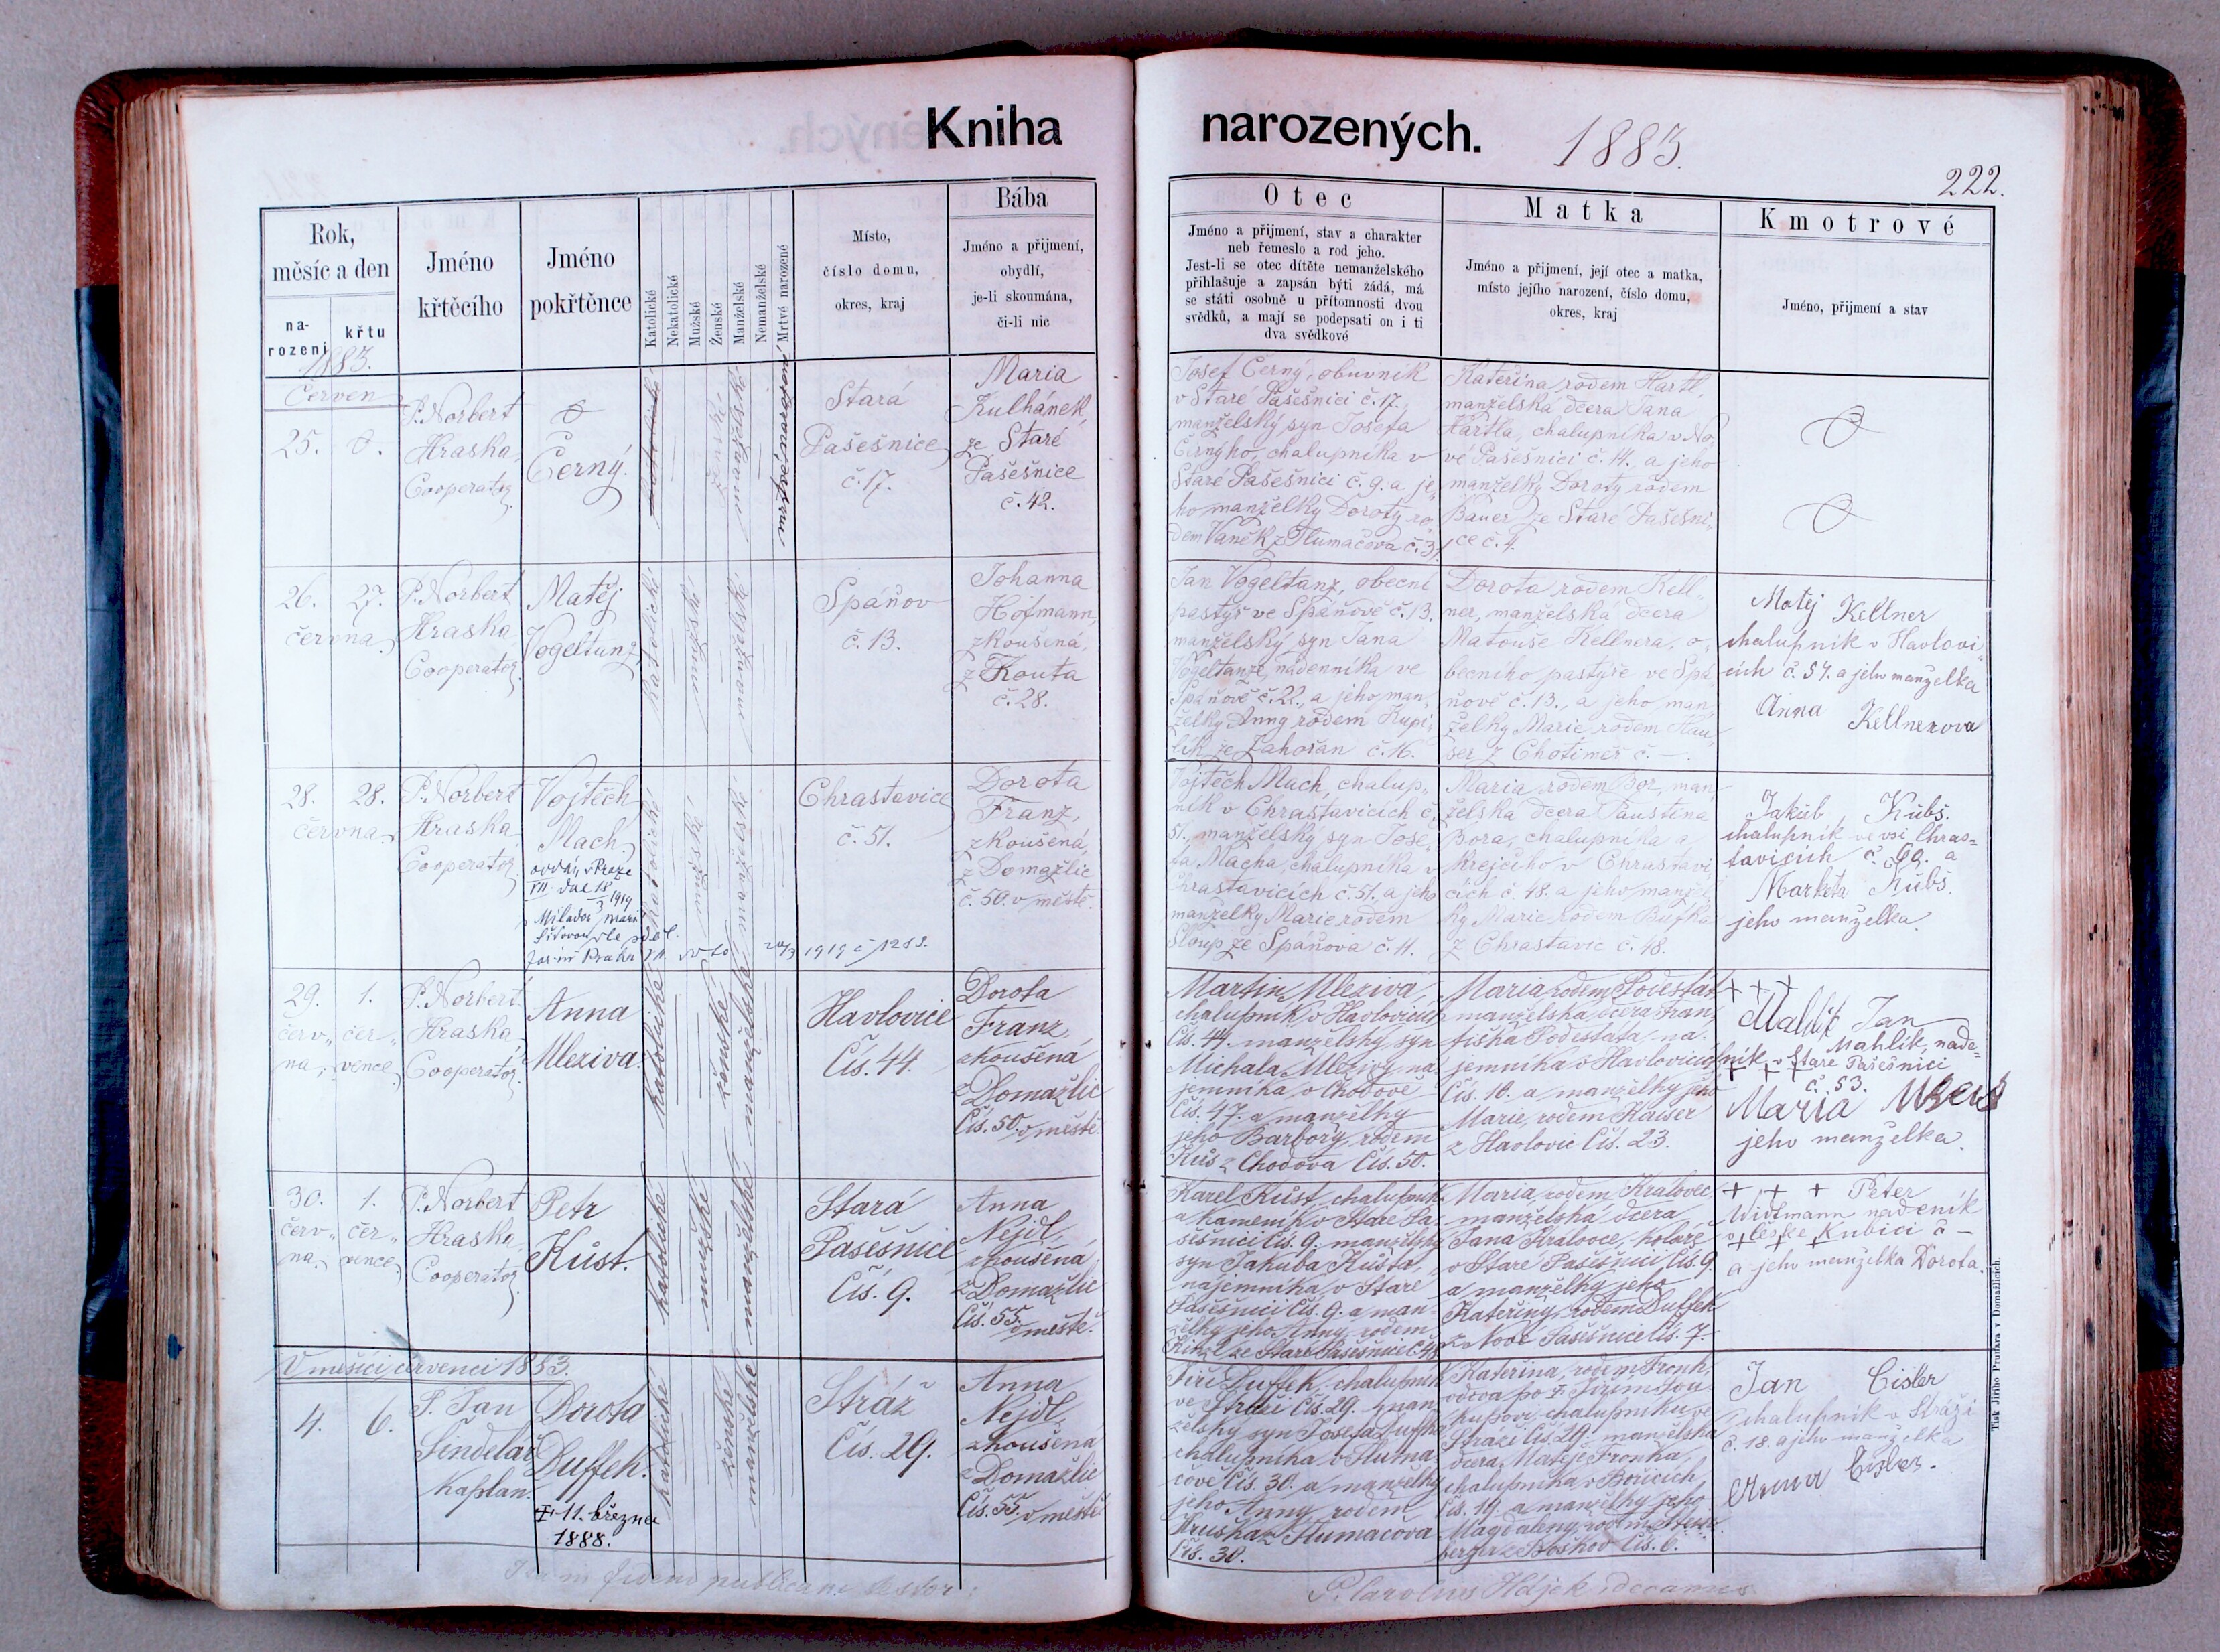 Kniha narozených. 1883.
222.
Rok, měsíc a den
narození
křtu
Jméno křtěcího
Jméno pokřtěnce
Katolické
Nekatolické
Mužské
Ženské
Manželské
Nemanželské
Mrtvé narozené
Místo,
číslo domu,
okres, kraj
Bába
Jméno a přijmení,
obydlí,
je-li skoumána,
či-li nic
Otec
Jméno a přijmení, stav a charakter
neb řemeslo a rod jeho.
Jest-li se otec dítěte nemanželského
přihlašuje a zapsán býti žádá, má
se státi osobně u přítomnosti dvou
svědků, a mají se podepsati on i ti
dva svědkové
Matka
Jméno a přijmení, její otec a matka,
místo jejího narození, číslo domu,
okres, kraj
Kmotrové
Jméno, přijmení a stav
1883.
Červen
25.
P. Norbert
Hraska,
Cooperator.
Černý.
katolické
ženské
manželské
mrtvě narozené
Stará
Pašešnice
č. 17.
Maria
Kulhánek,
ze Staré
Pašešnice
č. 42.
Josef Černý, obuvník
v Staré Pašešnici č. 17.,
manželský syn Josefa
Černýho, chalupníka v
Staré Pašešnici č. 9. a je-
ho manželky Doroty ro-
dem Vaněk z Tlumačova č. 3.
Kateřina rodem Hartl,
manželská dcera Jana
Hartla, chalupníka v No-
vé Pašešnici č. 14. a jeho
manželky Doroty rodem
Bauer ze Staré Pašešni-
ce č. 4.
26. 27.
června
P. Norbert
Hraska
Cooperator.
Matěj
Vogeltanz
katolické
mužské
manželské
Spáňov
č. 13.
Johanna
Hofmann,
zkoušená,
z Kouta
č. 28.
Jan Vogeltanz, obecní
pastýř ve Spáňově č. 13.
manželský syn Jana
Vogeltanze, nádenníka ve
Spáňově č. 22., a jeho man-
želky Anny rodem Kupi-
lík ze Zahořan č. 16.
Dorota rodem Kell-
ner, manželská dcera
Matouše Kellnera, o-
becního pastýře ve Spá-
ňově č. 13., a jeho man-
želky Marie rodem Hau-
ser z Chotiměř č. -.
Matěj Kellner
chalupník v Havlovi-
cích č. 54. a jeho manželka
Anna Kellnerova
28. 28.
června
P. Norbert
Hraska
Cooperator.
Vojtěch
Mach.
katolické
mužské
manželské
Chrastavice
č. 51.
1919 č 1283.
Dorota
Franz,
zkoušená,
z Domažlic
č. 50. v městě.
Vojtěch Mach, chalup-
ník v Chrastavicích č.
51., manželský syn Jose-
fa Macha, chalupníka v
Chrastavicích č. 51. a jeho
manželky Marie rodem
Sloup ze Spáňova č. 11.
Maria rodem Bor, man-
želská dcera Faustina
Bora, chalupníka a
krejčího v Chrastavi-
cích č. 48. a jeho manžel-
ky Marie rodem
z Chrastavic č. 18.
Jakub Kubš.
chalupník ve vsi Chras-
tavicích č. 69. a
Marketa Kubš.
jeho manželka.
29. 1.
červ- čer-
na, vence,
P. Norbert
Hraska,
Cooperator.
Anna
Mleziva.
katolické
ženské
manželské
Havlovice
Čís. 44.
Dorota
Franz,
zkoušená
z Domažlic
Čís. 50. v městě.
Martin Mleziva,
chalupník v Havlovicích
Čís. 44. manželský syn
Michala Mlezivy ná-
jemníka v Chodově
Čís. 47. a manželky
jeho Barbory, rodem
Kůs z Chodova Čís. 50.
Maria rodem Podestát
manželská dcera Fran-
tiška Podestáta, ná-
jemníka v Havlovicích
Čís. 10. a manželky jeho
Marie, rodem Kaiser
z Havlovic Čís. 23.
+ + +
Mahlík Jan
Mahlík, náde-
ník v Staré Pašešnici
+ + +
č. 53.
Maria
jeho manželka.
30. 1.
červ- čer-
na, vence,
P. Norbert
Hraska,
Cooperator.
Petr
Kůst.
katolické
mužské
manželské
Stará
Pašešnice
Čís. 9.
Anna
Nejdl,
zkoušená,
z Domažlic
Čís. 55. v městě.
Karel Kůst, chalupník
a kameník v Staré Pa-
šešnici Čís. 9. manželský
syn Jakuba Kůsta,
nájemníka v Staré
Pašešnici Čís. 9. a man-
želky jeho Anny, rodem
ze Staré Pašešnice Č. 48.
Maria, rodem Královec
manželská dcera
Jana Královce, koláře
v Staré Pašešnici, Čís. 9.
a manželky jeho
Kateřiny, rodem Duffek
z Nové Pašešnice Čís. 7.
+ + + Peter
Widtmann nádeník
v české Kubici č -
+ + +
a jeho manželka Dorota.
V měsíci červenci 1883.
4. 6.
P. Jan
Šindelář
Kaplan.
Dorota
Duffek.
11. března
1888.
katolické
ženské
manželské
Stráž
Čís. 29.
Anna
Nejdl,
zkoušená
z Domažlic
Čís. 55. v městě
Jiří Duffek, chalupník
ve Stráži Čís. 29. man-
želský syn Josefa Duffka,
chalupníka v Tluma-
čově Čís. 30. a manželky
jeho Anny, rodem
Hruška z Tlumačova
Čís. 30.
Kateřina, rodem Fronk,
vdova po
chalupníku ve
Stráži Čís. 29. manželská
dcera Matěje Fronka,
chalupníka v Bořicích,
Čís. 19. a manželky jeho
Magdaleny, rodem
Čís. 6.
Jan Cisler
chalupník v Stráži
č. 18. a jeho manželka
Anna Cisler.
P. Carolus Hájek, decanus
Tisk Jiřího Prunara v Domažlicích.